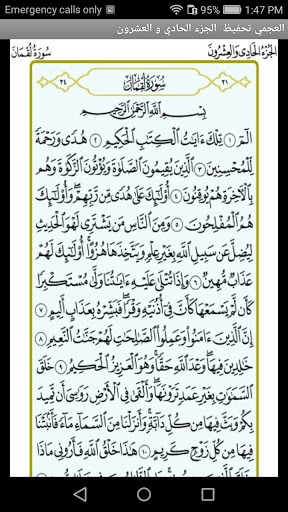 Emergency calls only
34% 1:47 PM
العجمي تحفيظ الجزء الحادي و العشرون
الجزء الحادي والعشرون
سورة لقمان
٢١ سورة لقمان ٣٤
بسم الله الرحمن الرحيم
الٓمٓ ١ تِلْكَ ءَايَٰتُ ٱلْكِتَٰبِ ٱلْحَكِيمِ ٢ هُدًى وَرَحْمَةً
لِّلْمُحْسِنِينَ ٣ ٱلَّذِينَ يُقِيمُونَ ٱلصَّلَوٰةَ وَيُؤْتُونَ ٱلزَّكَوٰةَ وَهُم
بِٱلْأَخِرَةِ هُمْ يُوقِنُونَ ٤ أُو۟لَٰٓئِكَ عَلَىٰ هُدًى مِّن رَّبِّهِمْ وَأُو۟لَٰٓئِكَ
هُمُ ٱلْمُفْلِحُونَ ٥ وَمِنَ ٱلنَّاسِ مَن يَشْتَرِى لَهْوَ ٱلْحَدِيثِ
لِيُضِلَّ عَن سَبِيلِ ٱللَّهِ بِغَيْرِ عِلْمٍ وَيَتَّخِذَهَا هُزُوًا أُو۟لَٰٓئِكَ لَهُمْ
عَذَابٌ مُّهِينٌ ٦ وَإِذَا تُتْلَىٰ عَلَيْهِ ءَايَٰتُنَا وَلَّىٰ مُسْتَكْبِرًا
كَأَن لَّمْ يَسْمَعْهَا كَأَنَّ فِىٓ أُذُنَيْهِ وَقْرًا فَبَشِّرْهُ بِعَذَابٍ أَلِيمٍ ٧
إِنَّ ٱلَّذِينَ ءَامَنُوا۟ وَعَمِلُوا۟ ٱلصَّٰلِحَٰتِ لَهُمْ جَنَّٰتُ ٱلنَّعِيمِ ٨
خَٰلِدِينَ فِيهَا وَعْدَ ٱللَّهِ حَقًّا وَهُوَ ٱلْعَزِيزُ ٱلْحَكِيمُ ٩ خَلَقَ
ٱلسَّمَٰوَٰتِ بِغَيْرِ عَمَدٍ تَرَوْنَهَا وَأَلْقَىٰ فِى ٱلْأَرْضِ رَوَٰسِىَ أَن تَمِيدَ
بِكُمْ وَبَثَّ فِيهَا مِن كُلِّ دَآبَّةٍ وَأَنزَلْنَا مِنَ ٱلسَّمَآءِ مَآءً فَأَنۢبَتْنَا
فِيهَا مِن كُلِّ زَوْجٍ كَرِيمٍ ١٠ هَٰذَا خَلْقُ ٱللَّهِ فَأَرُونِى مَاذَا